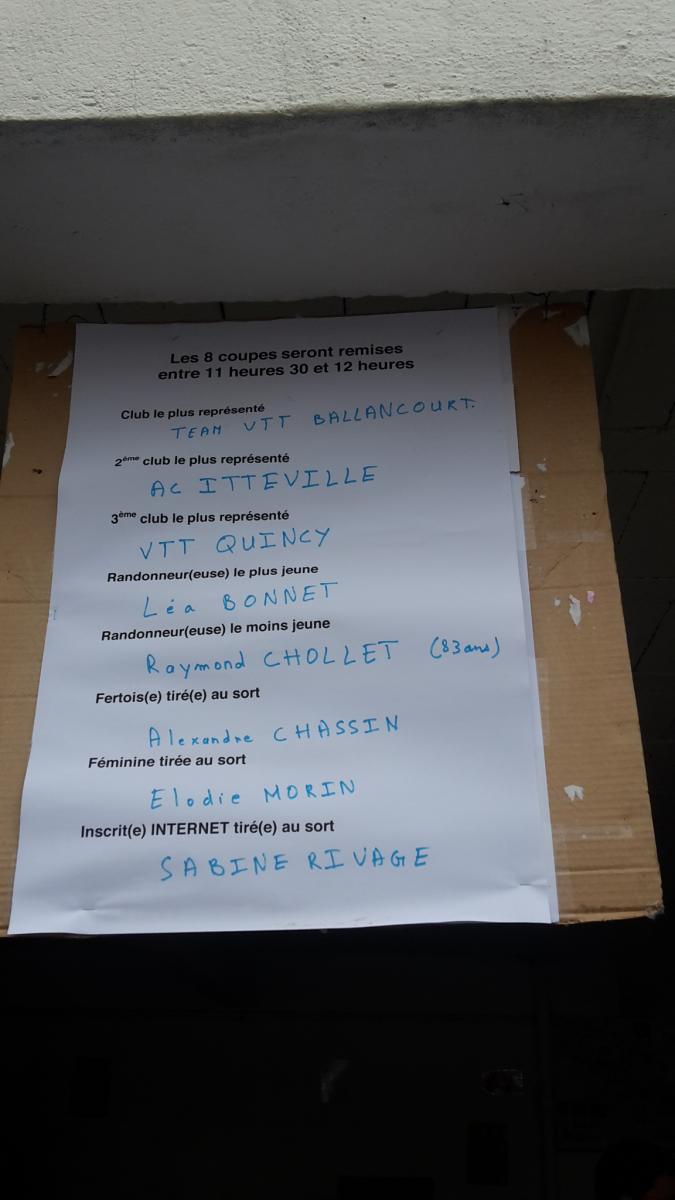 Les 8 coupes seront remises
entre 11 heures 30 et 12 heures
Club le plus représenté
TEAM VTT BALLANCOURT.
2ème club le plus représenté
AC ITTEVILLE
3ème club le plus représenté
VTT QUINCY
Randonneur(euse) le plus jeune
Léa BONNET
Randonneur(euse) le moins jeune
Raymond CHOLLET (83 ans)
Fertois(e) tiré(e) au sort
Alexandre CHASSIN
Féminine tirée au sort
Elodie MORIN
Inscrit(e) INTERNET tiré(e) au sort
SABINE RIVAGE